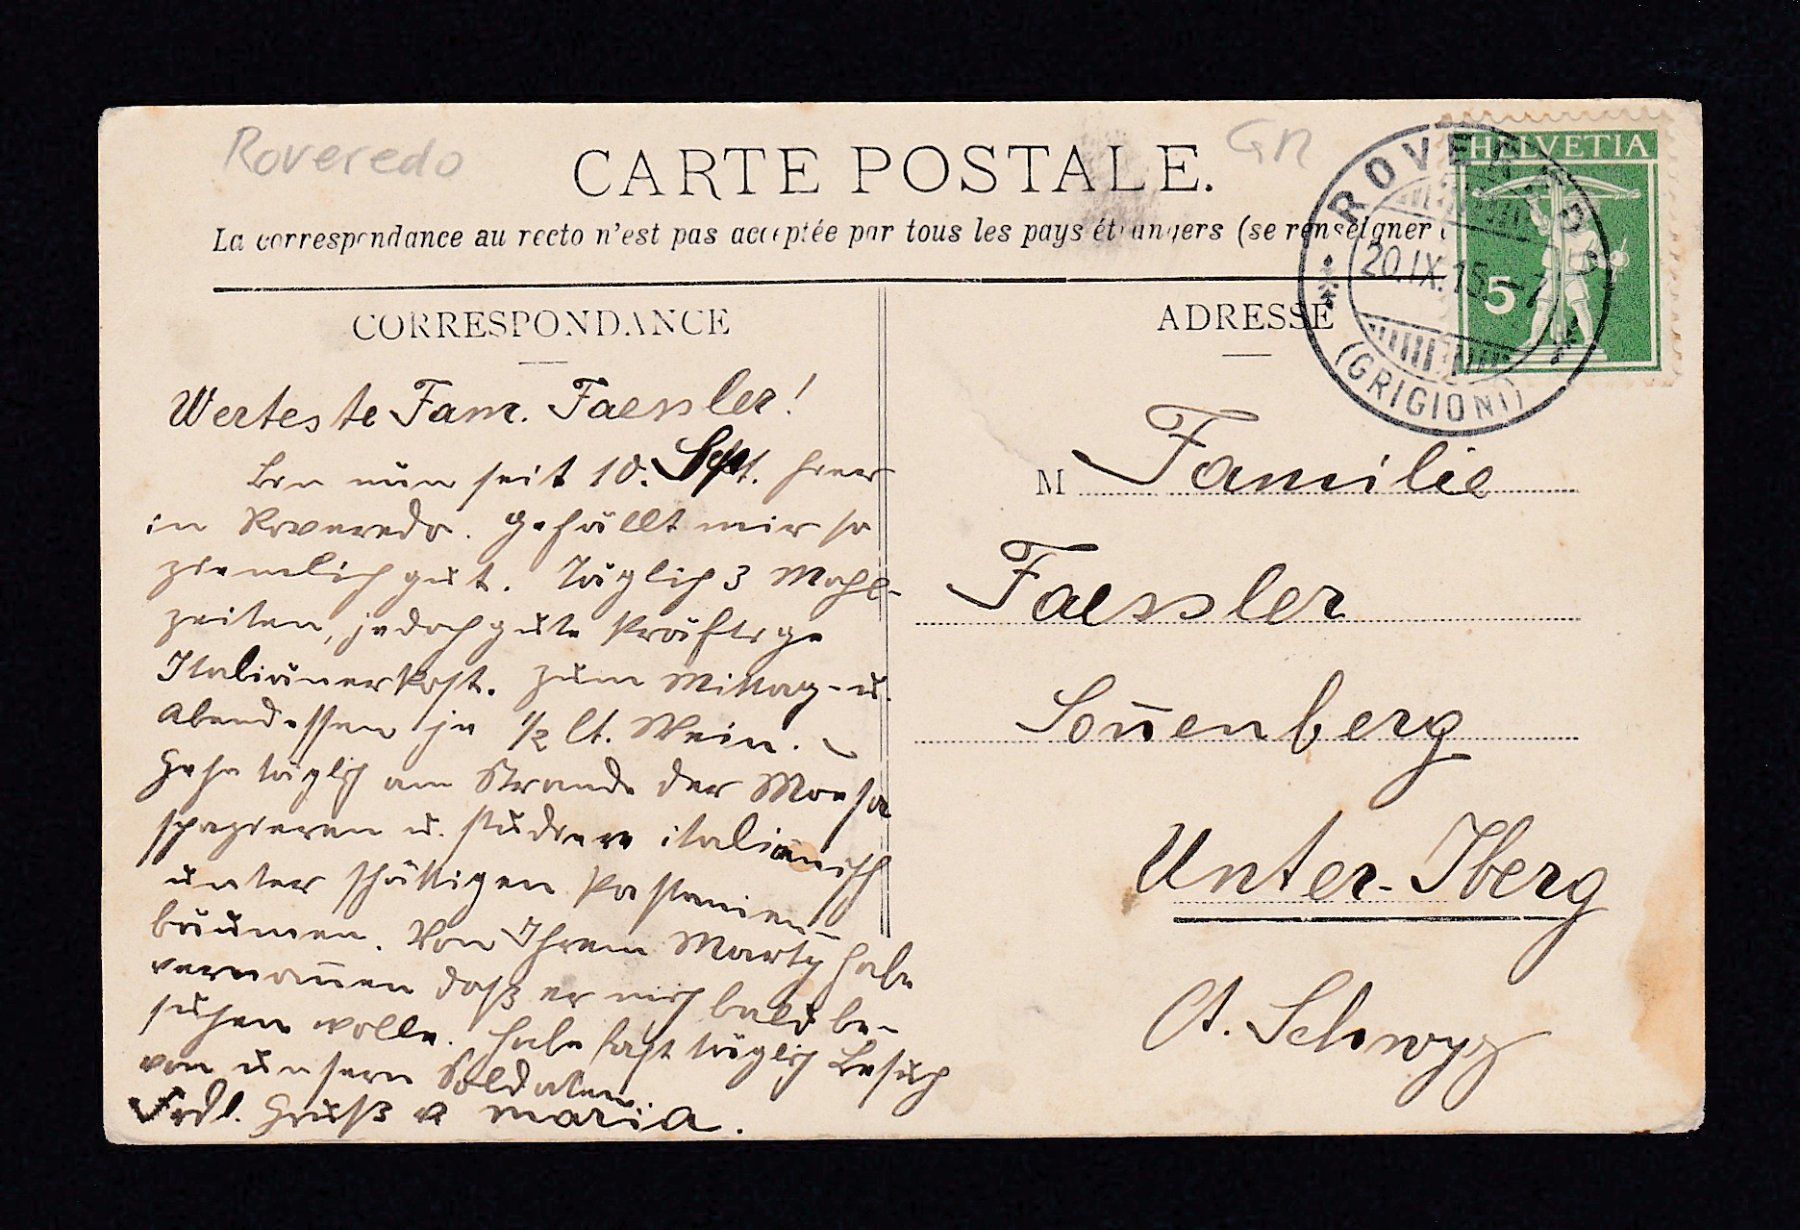 Roveredo
GR
CARTE POSTALE.
La correspondance au recto n'est pas acceptée par tous les pays étrangers (se renseigner
HELVETIA
5
ROVEREDO
20.IX.15.-7
(GRIGIONI)
CORRESPONDANCE
ADRESSE
Werteste Fam. Faessler!
Bin nun seit 10. Sept. hier
in Roveredo. Gefällt mir so
ziemlich gut. Täglich 3 Mahl-
zeiten, jedoch gute kräftige
Italiänerkost. Zum Mittag- u.
Abendessen je 1/2 lt. Wein. –
Gehe täglich am Strande der Moesa
spazieren u. studiere italienisch
unter schattigen Kastanien-
bäumen. Von Ihrem Marty habe
vernom̅en daß er mich bald be-
suchen wolle. Habe fast täglich Besuch
von unsern Soldaten.
Frdl. Gruß v. Maria.
M Familie
Faessler
Son̅enberg
Unter-Iberg
Ct. Schwyz